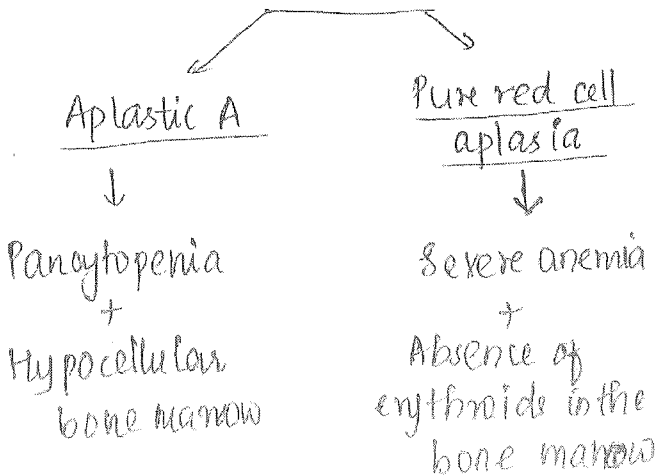 Aplastic A
Pancytopenia
+
Hypocellular
bone marrow
Pure red cell
aplasia
Severe anemia
+
Absence of
erythroids in the
bone marrow